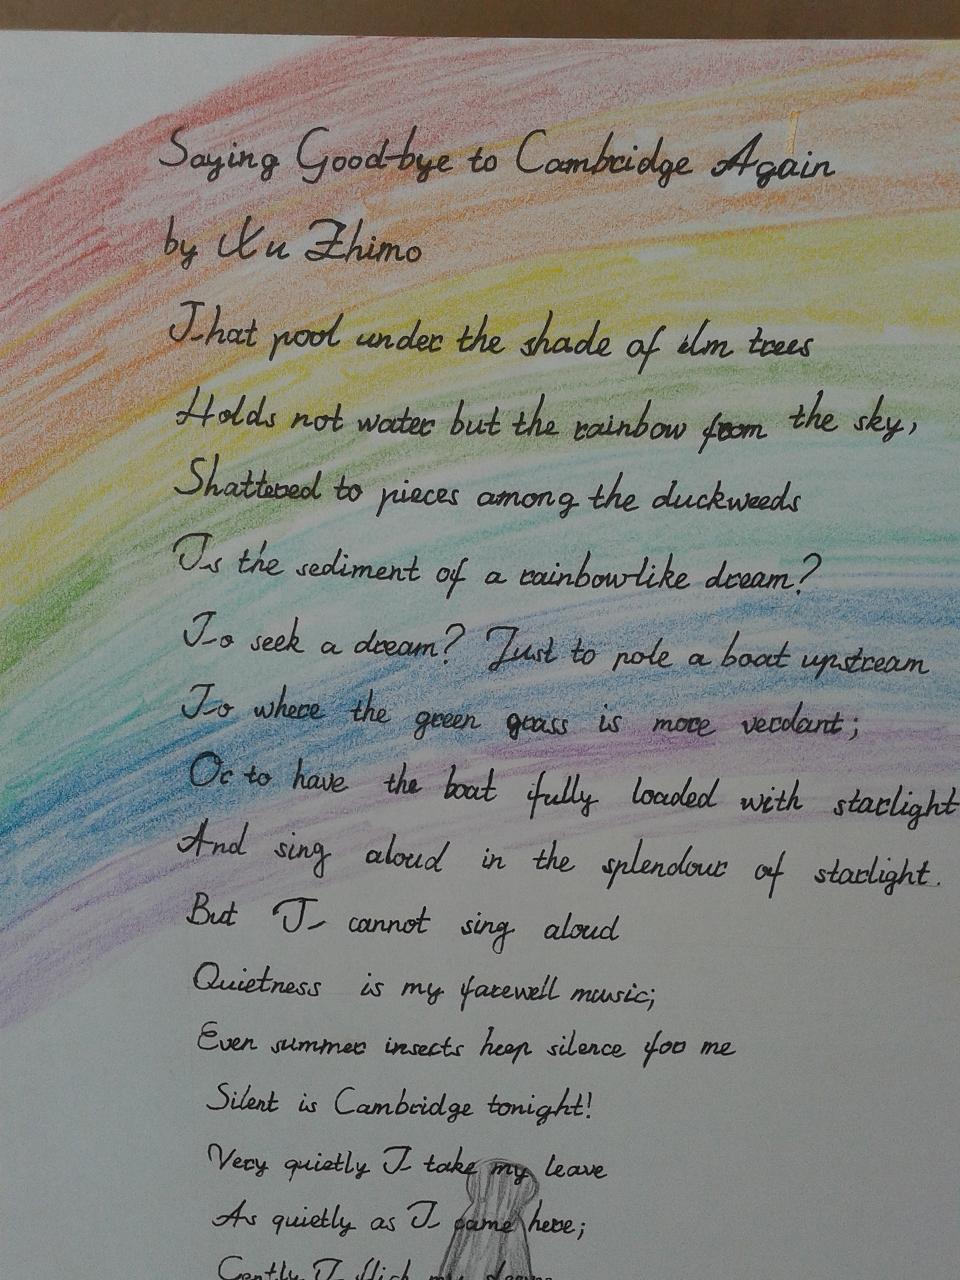 Saying Good-bye to Cambridge Again
by Xu Zhimo
That pool under the shade of elm trees
Holds not water but the rainbow from the sky,
Shattered to pieces among the duckweeds
Is the sediment of a rainbow-like dream?
To seek a dream? Just to pole a boat upstream
To where the green grass is more verdant;
Or to have the boat fully loaded with starlight
And sing aloud in the splendour of starlight.
But I cannot sing aloud
Quietness is my farewell music;
Even summer insects heep silence for me
Silent is Cambridge tonight!
Very quietly I take my leave
As quietly as I came here;
Gently I flick my sleeves